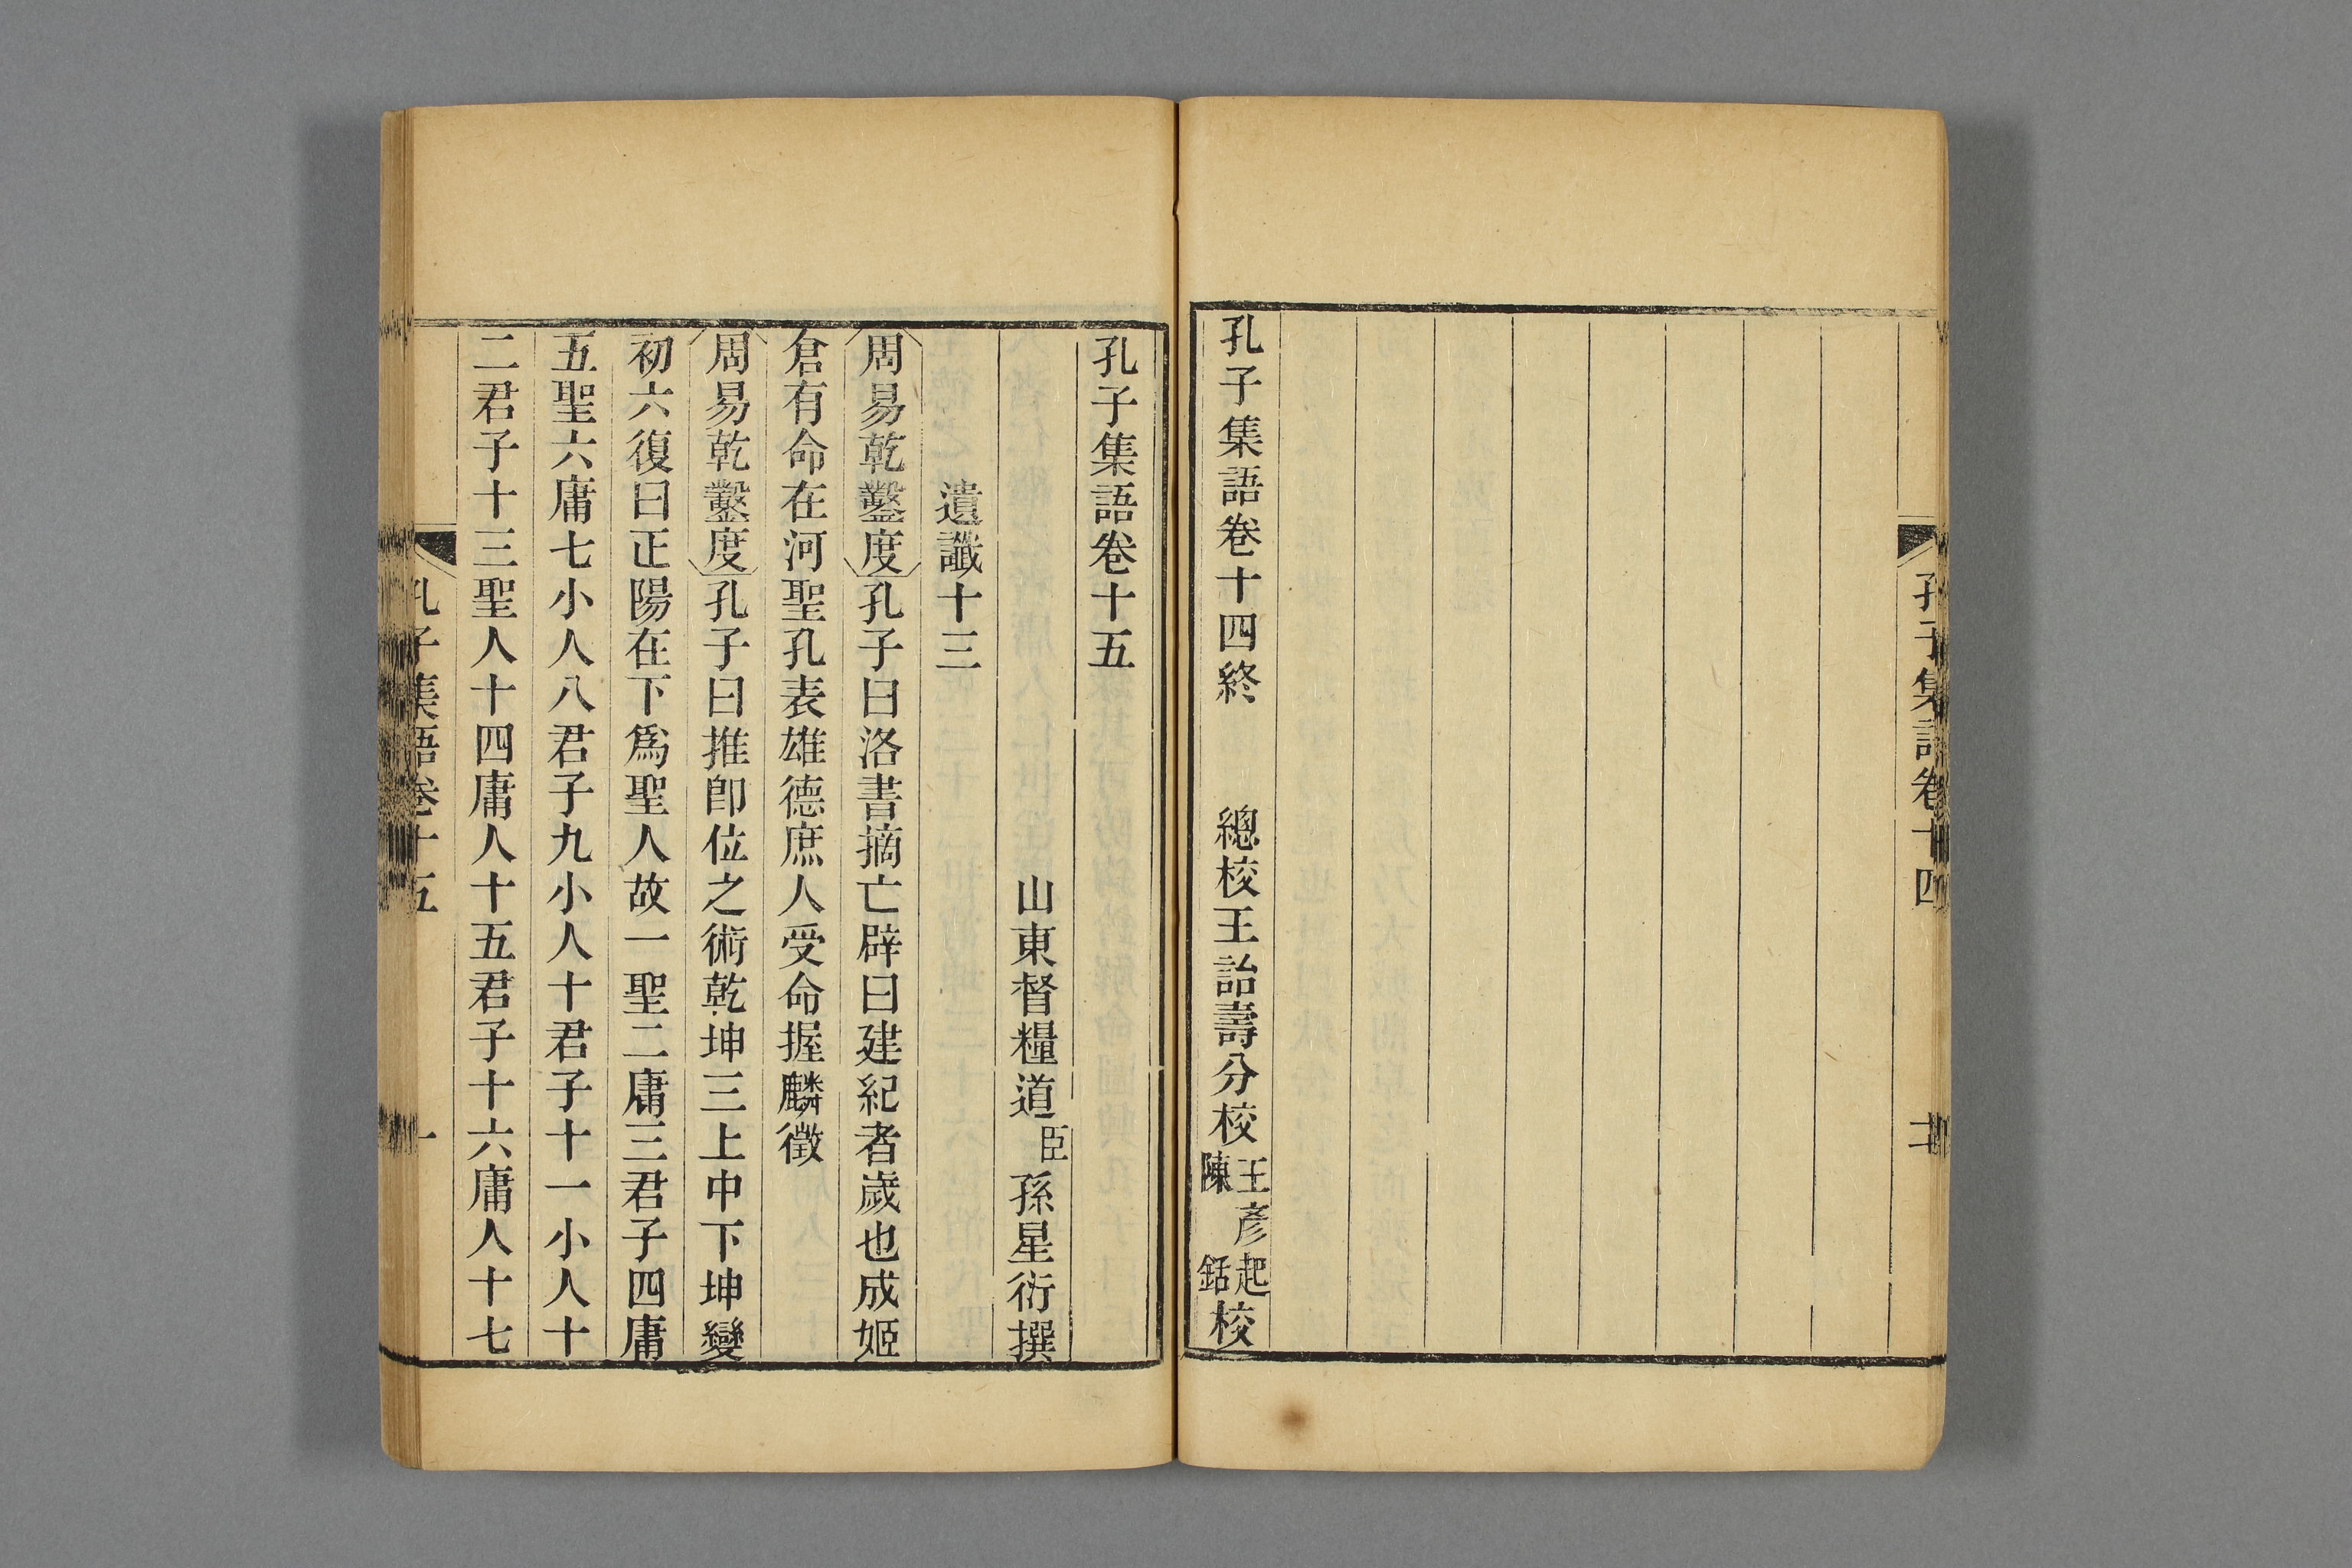 孔子集語卷十四
孔子集語卷十四終　總校王詒壽分校王彥起陳銛校
孔子集語卷十五
山東督糧道臣孫星衍撰
遺讖十三
周易乾鑿度孔子曰洛書摘亡辟曰建紀者歲也成姬
倉有命在河聖孔表雄德庶人受命握麟徵
周易乾鑿度孔子曰推卽位之術乾坤三上中下坤變
初六復曰正陽在下爲聖人故一聖二庸三君子四庸
五聖六庸七小人八君子九小人十君子十一小人十
二君子十三聖人十四庸人十五君子十六庸人十七
孔子集語卷十五
一